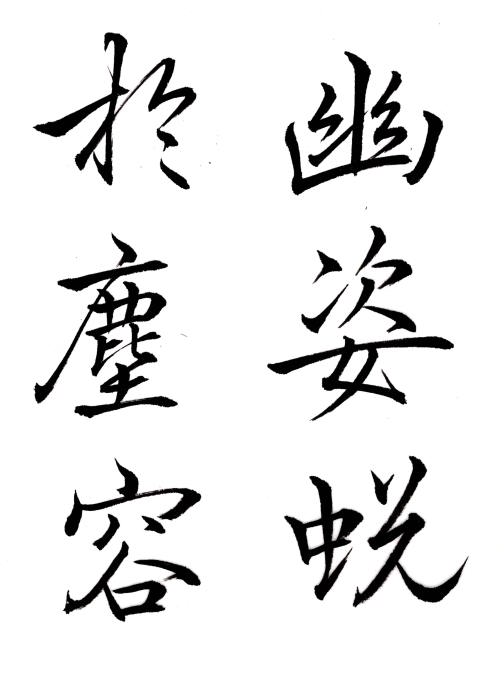 幽姿蜕
於塵容